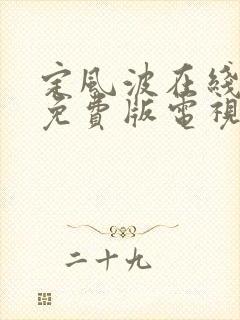 定風波在綫
免費版電視
二十九